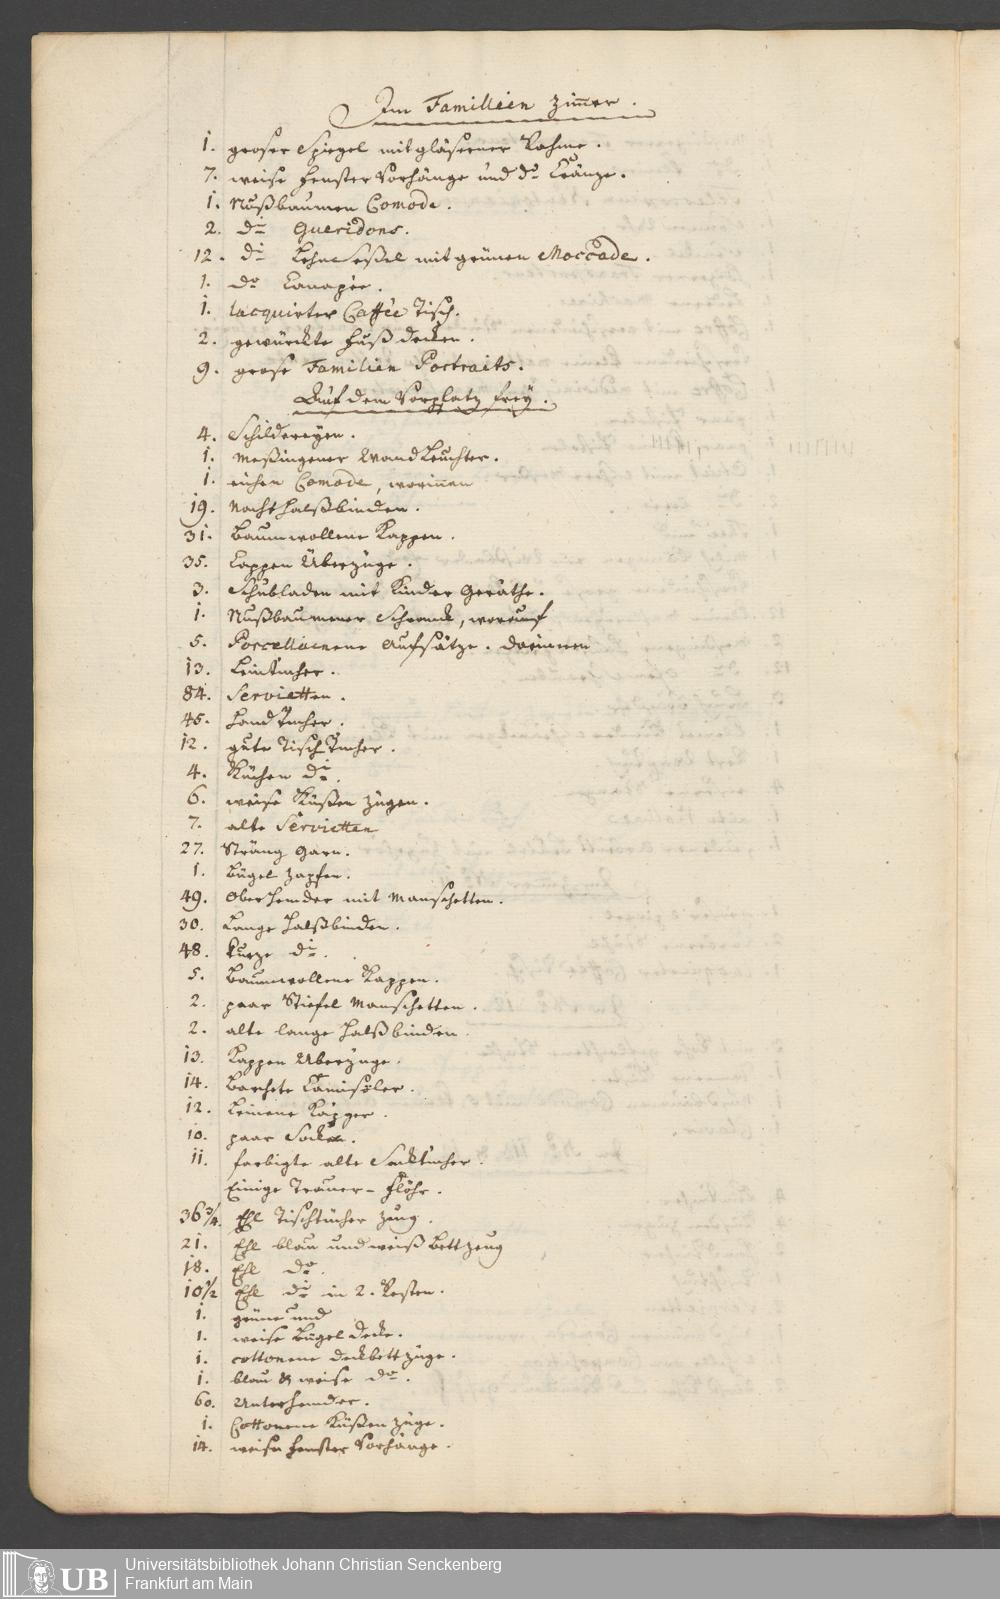 Im Familien Zimer.
1. groser Spiegel mit gläserner Rahme.
7. weise Fenster Vorhänge und do Cränze.
1. Nußbaumen Comode.
2. do Gueridons.
12. do Lehn Seßel mit grünen Moccade.
1. do Canapée.
1. lacquirter Caffée Tisch.
2. gewürckte Fuß decken.
9. grose Familien Portraits.
Auf dem Vorplatz frey.
4. Schildereyen.
1. Meßingener Wand Leuchter.
1. eichen Comode, worinnen
19. Nacht Halßbinden.
31. Baumwollene Kappen.
35. Kappen Überzüge.
3. Schubladen mit Kinder Geräthe.
1. Nußbaumener Schranck, worauf
5. Porcellainene Aufsätze. darinnen
13. Leintücher.
84. Servietten.
45. Handtücher.
12. gute Tisch Tücher.
4. Küchen do.
6. weise Küßen Zügen.
7. alte Servietten
27. Sträng Garn.
1. Bügel Zapfen.
49. Oberhemder mit Manschetten.
30. Lange Halßbinden.
48. kurze do.
5. Baumwollene Kappen.
2. paar Stiefel Manschetten.
2. alte lange Halßbinden.
13. Kappen Uberzüge.
14. Barchete Camisöler.
12. Leinene
10. paar Socken.
11. farbigte alte Sacktücher.
Einige Trauer-Flöhr.
36 3/4. Ehl Tischtücher Zeug.
21. Ehl blau und weiß Bettzeug
18. Ehl do.
10 1/2 Ehl do in 2. Resten.
1. grüne und
1. weise Bügel Decke.
1. cottonene deckbett Züge.
1. blau & weise do.
60. Unterhemder.
1. Cottonene Küßen Züge.
14. weise Fenster Vorhänge.
UB
Universitätsbibliothek Johann Christian Senckenberg
Frankfurt am Main